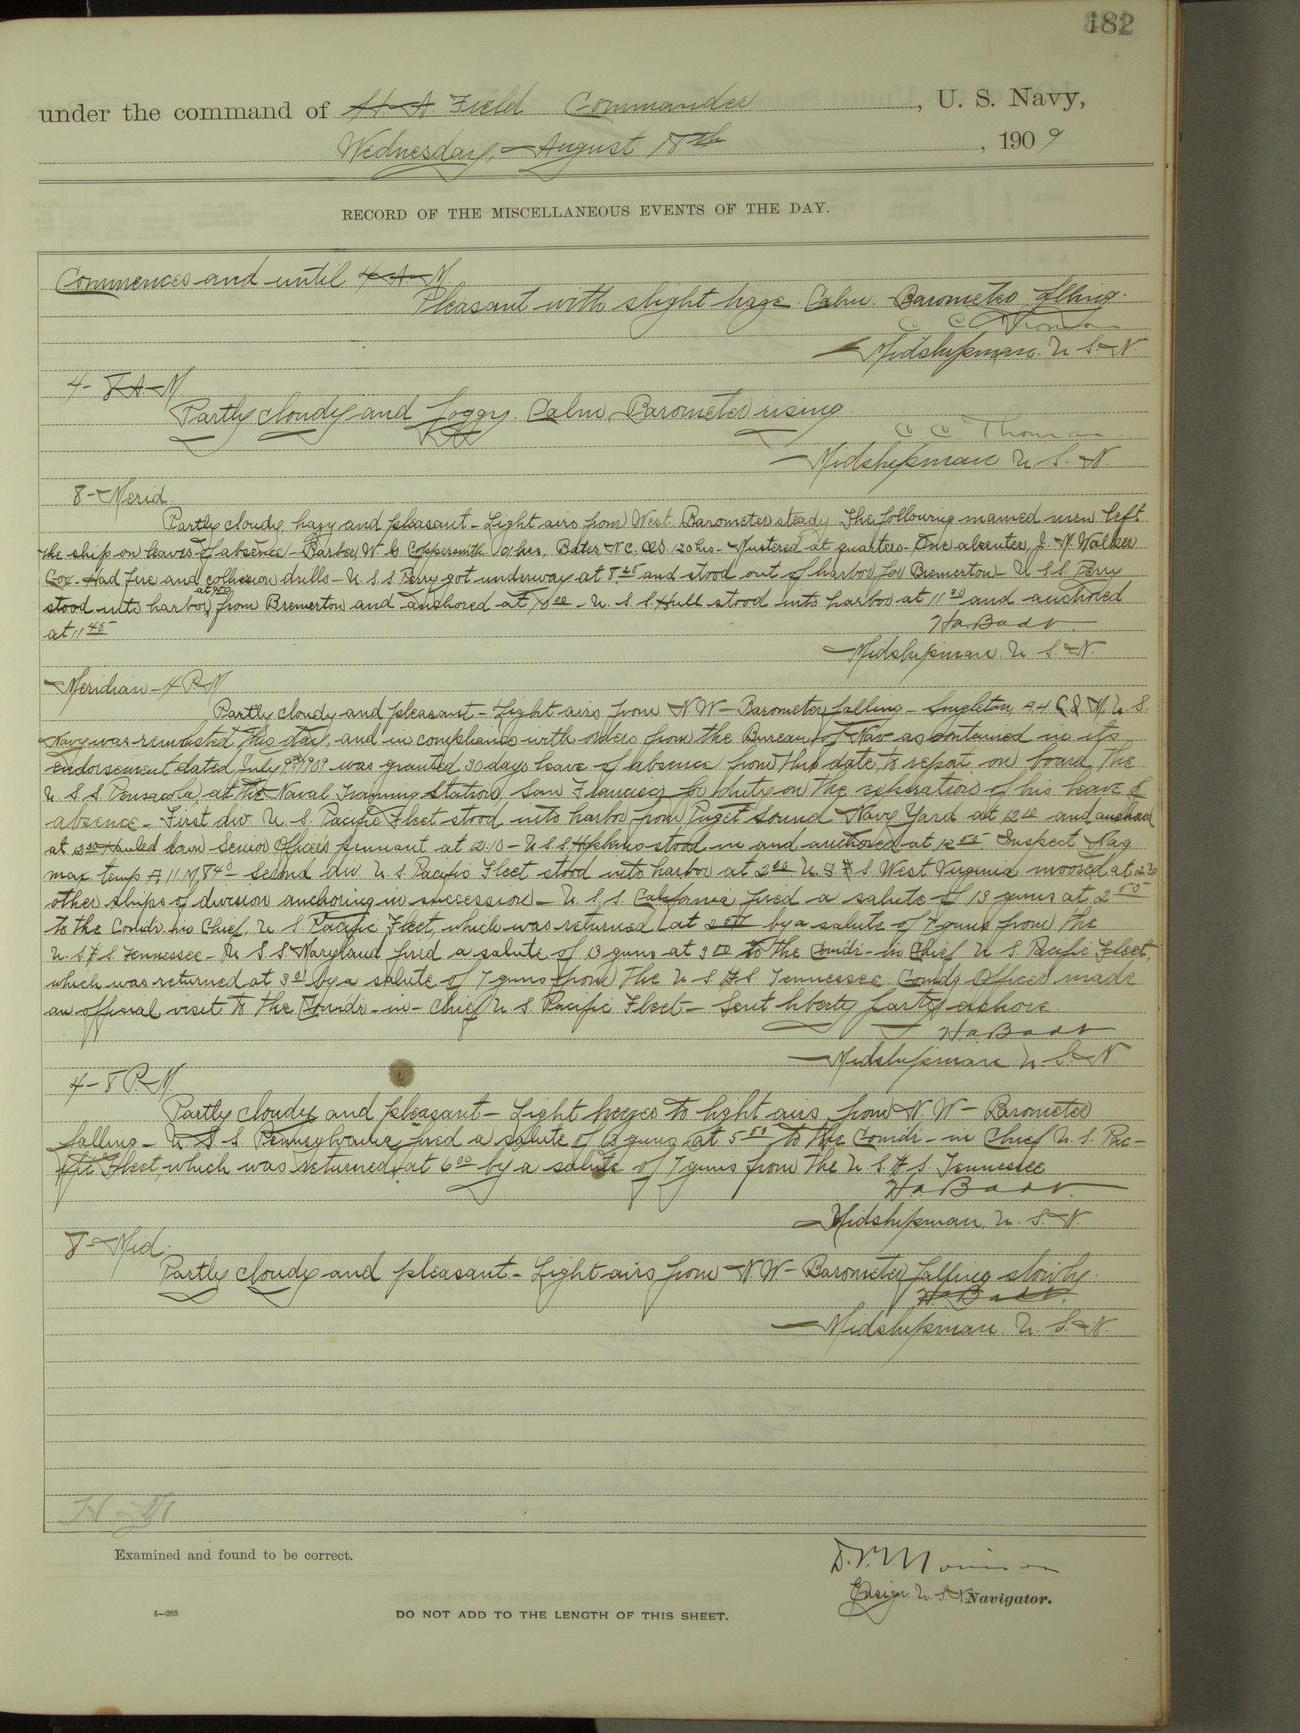 182
under the command of H A Field Commander, U. S. Navy,
Wednesday, August 18th, 1909
RECORD OF THE MISCELLANEOUS EVENTS OF THE DAY.
Commences and until 4 A M
Pleasant with slight haze. Calm. Barometer falling.
C C Thomas
Midshipman. U S. N.
4 - 8 A. M
Partly cloudy and foggy. Calm. Barometer rising.
C C. Thomas
Midshipman U S. N.
8 - Merid
Partly cloudy, hazy and pleasant - Light airs from West. Barometer steady. The following named men left
the ship on leaves of absence - Barber, W. G Coppersmith hrs, Bates, N C. 120 hrs - Mustered at quarters - One absentee, J. N Walker
Cox - Had fire and collission drills - U S S Perry got underway at 8 25 and stood out of harbor for Bremerton - U S S Perry
stood into harbor from Bremerton and anchored at 10 00 - U. S. S. Hull stood into harbor at 11 20 and anchored
at 11 45
Ha. Badt.
Midshipman. U S. N.
Meridian - 4 P M
Partly cloudy and pleasant - Light airs from N W - Barometer falling - Singleton, U. S.
Navy was reenlisted this day, and in compliance with orders from the Bureau of Nav as contained in its
endorsement dated July 9th 1909 was granted 30 days leave of absence from this date, to report on board the
U S S Pensacola, at the Naval Training Station, San Francisco for duties on the expiration of his leave of
absence - First div. U. S. Pacific Fleet stood into harbor from Puget Sound Navy Yard at and anchored
at Hauled down Senior Officers pennant at 12:10 - U S S Hopkins stood in and anchored at 12 55. Inspect Mag
max temp 84° Second div. U. S Pacific Fleet stood into harbor at 2 00 U. S S West Virginia moored at 2 30
other ships of division anchoring in succession - U. S. S. California fired a salute of 13 guns at 2 55
to the Comdr in Chief, U. S Pacific Fleet, which was returned at by a salute of 7 guns from the
U. S. S. Tennessee - U S S Maryland fired a salute of 13 guns at 3 00 to the Comdr - in Chief U S Pacific Fleet,
which was returned at 3 01 by a salute of 7 guns from the U S S. Tennessee. Comdg Officer made
an official visit to the Comdr - in - Chief U S. Pacific Fleet - Sent liberty party ashore.
Ha. Badt
Midshipman U. S. N
4 - 8 P. M.
Partly cloudy and pleasant - Light breezes to light airs from N. W - Barometer
falling - U. S. S. Pennsylvania fired a salute of 13 guns at 5 59 to the Comdr - in Chief U. S. Pac-
ific Fleet, which was returned at 6 00 by a salute of 7 guns from the U. S. S. Tennessee
Ha Badt.
Midshipman, U. S. N.
8 - Mid.
Partly cloudy and pleasant - Light airs from N. W - Barometer falling slowly.
Ha Badt.
Midshipman. U. S. N.
Examined and found to be correct.
Ensign U. S. N Navigator.
4—265
DO NOT ADD TO THE LENGTH OF THIS SHEET.